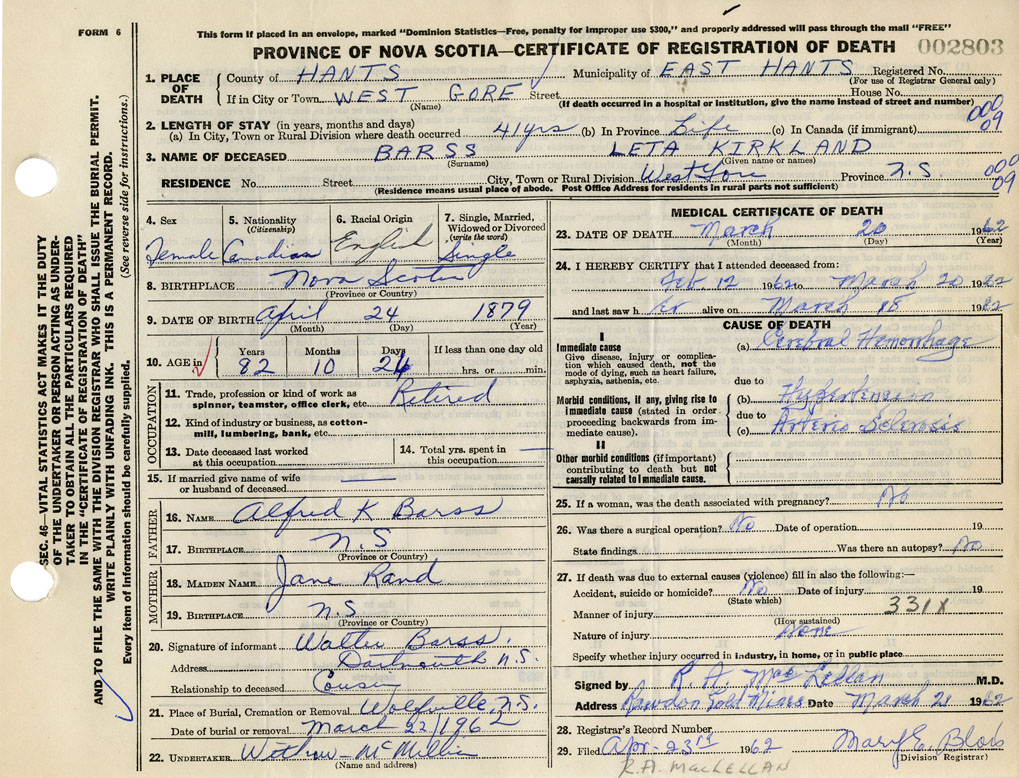 FORM 6
This form if placed in an envelope, marked "Dominion Statistics—Free, penalty for improper use $300," and properly addressed will pass through the mail "FREE"
PROVINCE OF NOVA SCOTIA—CERTIFICATE OF REGISTRATION OF DEATH 002803
1. PLACE OF DEATH County of HANTS Municipality of EAST HANTS Registered No.
(For use of Registrar General only)
If in City or Town WEST GORE Street House No.
(Name) (If death occurred in a hospital or institution, give the name instead of street and number)
000
09
2. LENGTH OF STAY (in years, months and days)
(a) In City, Town or Rural Division where death occurred 41 yrs (b) In Province Life (c) In Canada (if immigrant)
3. NAME OF DECEASED BARSS LETA KIRKLAND
(Surname) (Given name or names)
RESIDENCE No. Street City, Town or Rural Division West Gore Province N.S.
(Residence means usual place of abode. Post Office Address for residents in rural parts not sufficient)
000
09
SEC. 46—VITAL STATISTICS ACT MAKES IT THE DUTY
OF THE UNDERTAKER OR PERSON ACTING AS UNDER-
TAKER TO OBTAIN ALL THE PARTICULARS REQUIRED
IN THE "CERTIFICATE OF REGISTRATION OF DEATH"
AND TO FILE THE SAME WITH THE DIVISION REGISTRAR WHO SHALL ISSUE THE BURIAL PERMIT.
WRITE PLAINLY WITH UNFADING INK. THIS IS A PERMANENT RECORD.
Every item of Information should be carefully supplied. (See reverse side for instructions.)
4. Sex 5. Nationality 6. Racial Origin 7. Single, Married,
(Citizenship) Widowed or Divorced
(write the word)
Female Canadian English Single
8. BIRTHPLACE Nova Scotia
(Province or Country)
9. DATE OF BIRTH April 24 1879
(Month) (Day) (Year)
10. AGE in Years Months Days If less than one day old
82 10 24 hrs. or min.
OCCUPATION
11. Trade, profession or kind of work as
spinner, teamster, office clerk, etc. Retired
12. Kind of industry or business, as cotton-
mill, lumbering, bank, etc.
13. Date deceased last worked
at this occupation
14. Total yrs. spent in
this occupation
15. If married give name of wife
or husband of deceased
FATHER
16. NAME Alfred K Barss
17. BIRTHPLACE N.S
(Province or Country)
MOTHER
18. MAIDEN NAME Jane Rand
19. BIRTHPLACE N.S
(Province or Country)
20. Signature of informant Walter Barss.
Address Dartmouth N.S.
Relationship to deceased Cousin
21. Place of Burial, Cremation or Removal Wolfville, N.S.
Date of burial or removal March 22/1962
22. UNDERTAKER
(Name and address)
MEDICAL CERTIFICATE OF DEATH
23. DATE OF DEATH March 20 1962
(Month) (Day) (Year)
24. I HEREBY CERTIFY that I attended deceased from:
Feb. 12 1962 to March 20 1962
and last saw her alive on March 18 1962
CAUSE OF DEATH
I
Immediate cause
Give disease, injury or complica-
tion which caused death, not the
mode of dying, such as heart failure,
asphyxia, asthenia, etc.
(a) Cerebral Hemorrhage
due to
Morbid conditions, if any, giving rise to
immediate cause (stated in order
proceeding backwards from im-
mediate cause).
(b) Hypertension
due to
(c) Arterio Sclerosis
II
Other morbid conditions (if important)
contributing to death but not
causally related to immediate cause.
25. If a woman, was the death associated with pregnancy? No
26. Was there a surgical operation? No Date of operation 19
State findings Was there an autopsy? No
27. If death was due to external causes (violence) fill in also the following:—
Accident, suicide or homicide? No Date of injury 19
(State which)
Manner of injury 331X
(How sustained)
Nature of injury None
Specify whether injury occurred in industry, in home, or in public place
Signed by R. A. MacLellan M.D.
Address Rawdon Gold Mines Date March 21 1962
28. Registrar's Record Number
29. Filed Apr-23rd 1962 Mary E. Blois
(Division Registrar)
R.A. MacLELLAN